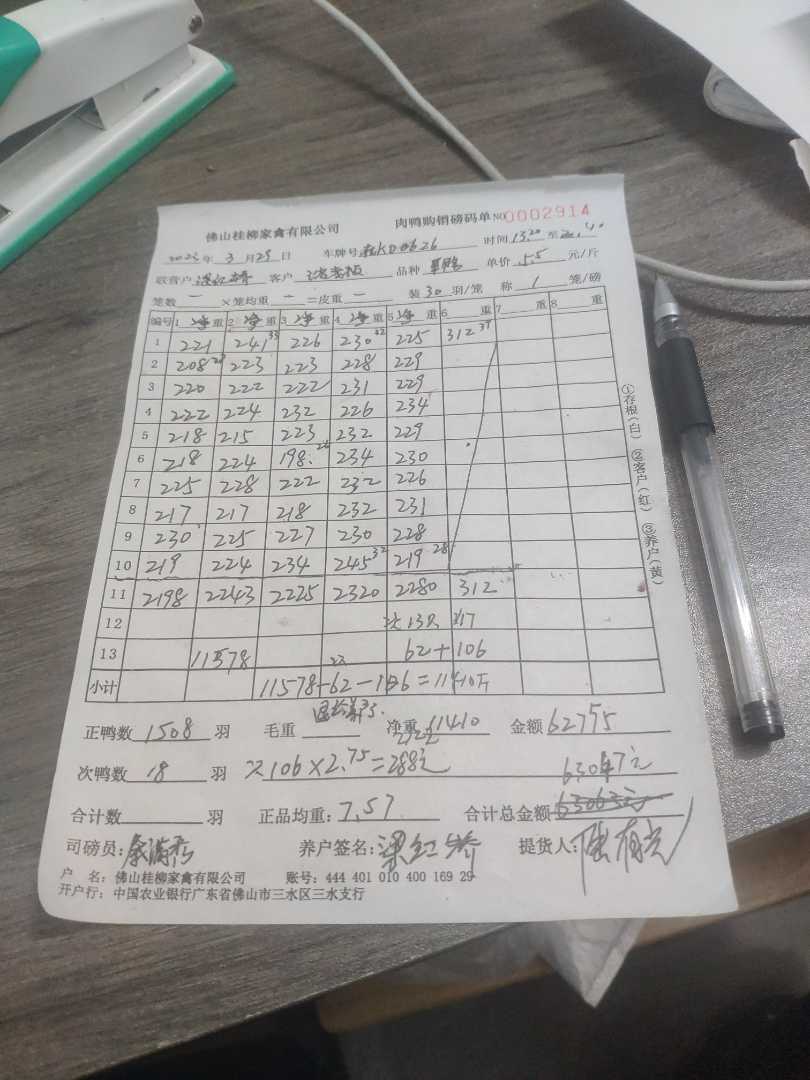 佛山桂柳家禽有限公司 肉鸭购销磅码单 NO 0002914
年 3 月 29 日 车牌号 0626 时间 13.20 至
联营户 客户 品种 单价 5.5 元/斤
笼数 一 ×笼均重 一 =皮重 一 装 30 羽/笼 称 1 笼/磅
编号 1 净重 2 净重 3 净重 4 净重 5 净重 6 重 7 重 8 重
1 221 241 33 226 230 32 225 312 37
2 208 29 223 223 228 229
3 220 222 222 231 229
4 222 224 232 226 234
5 218 215 223 232 229
6 218 224 198 26 234 230
7 225 228 222 232 226
8 217 217 218 232 231
9 230 225 227 230 228
10 219 224 234 245 32 219 28
11 2198 2243 2225 2320 2280 312
12 次 13只
13 11578 62+106
小计 11578-62-106=11410斤
正鸭数 1508 羽 毛重 净重 11410 金额 62755
次鸭数 18 羽 次106×2.75=288元
合计数 羽 正品均重: 7.57 合计总金额
司磅员: 养户签名: 梁红娇 提货人:
户 名: 佛山桂柳家禽有限公司 账号: 444 401 010 400 169 29
开户行: 中国农业银行广东省佛山市三水区三水支行
①存根(白) ②客户(红) ③养户(黄)